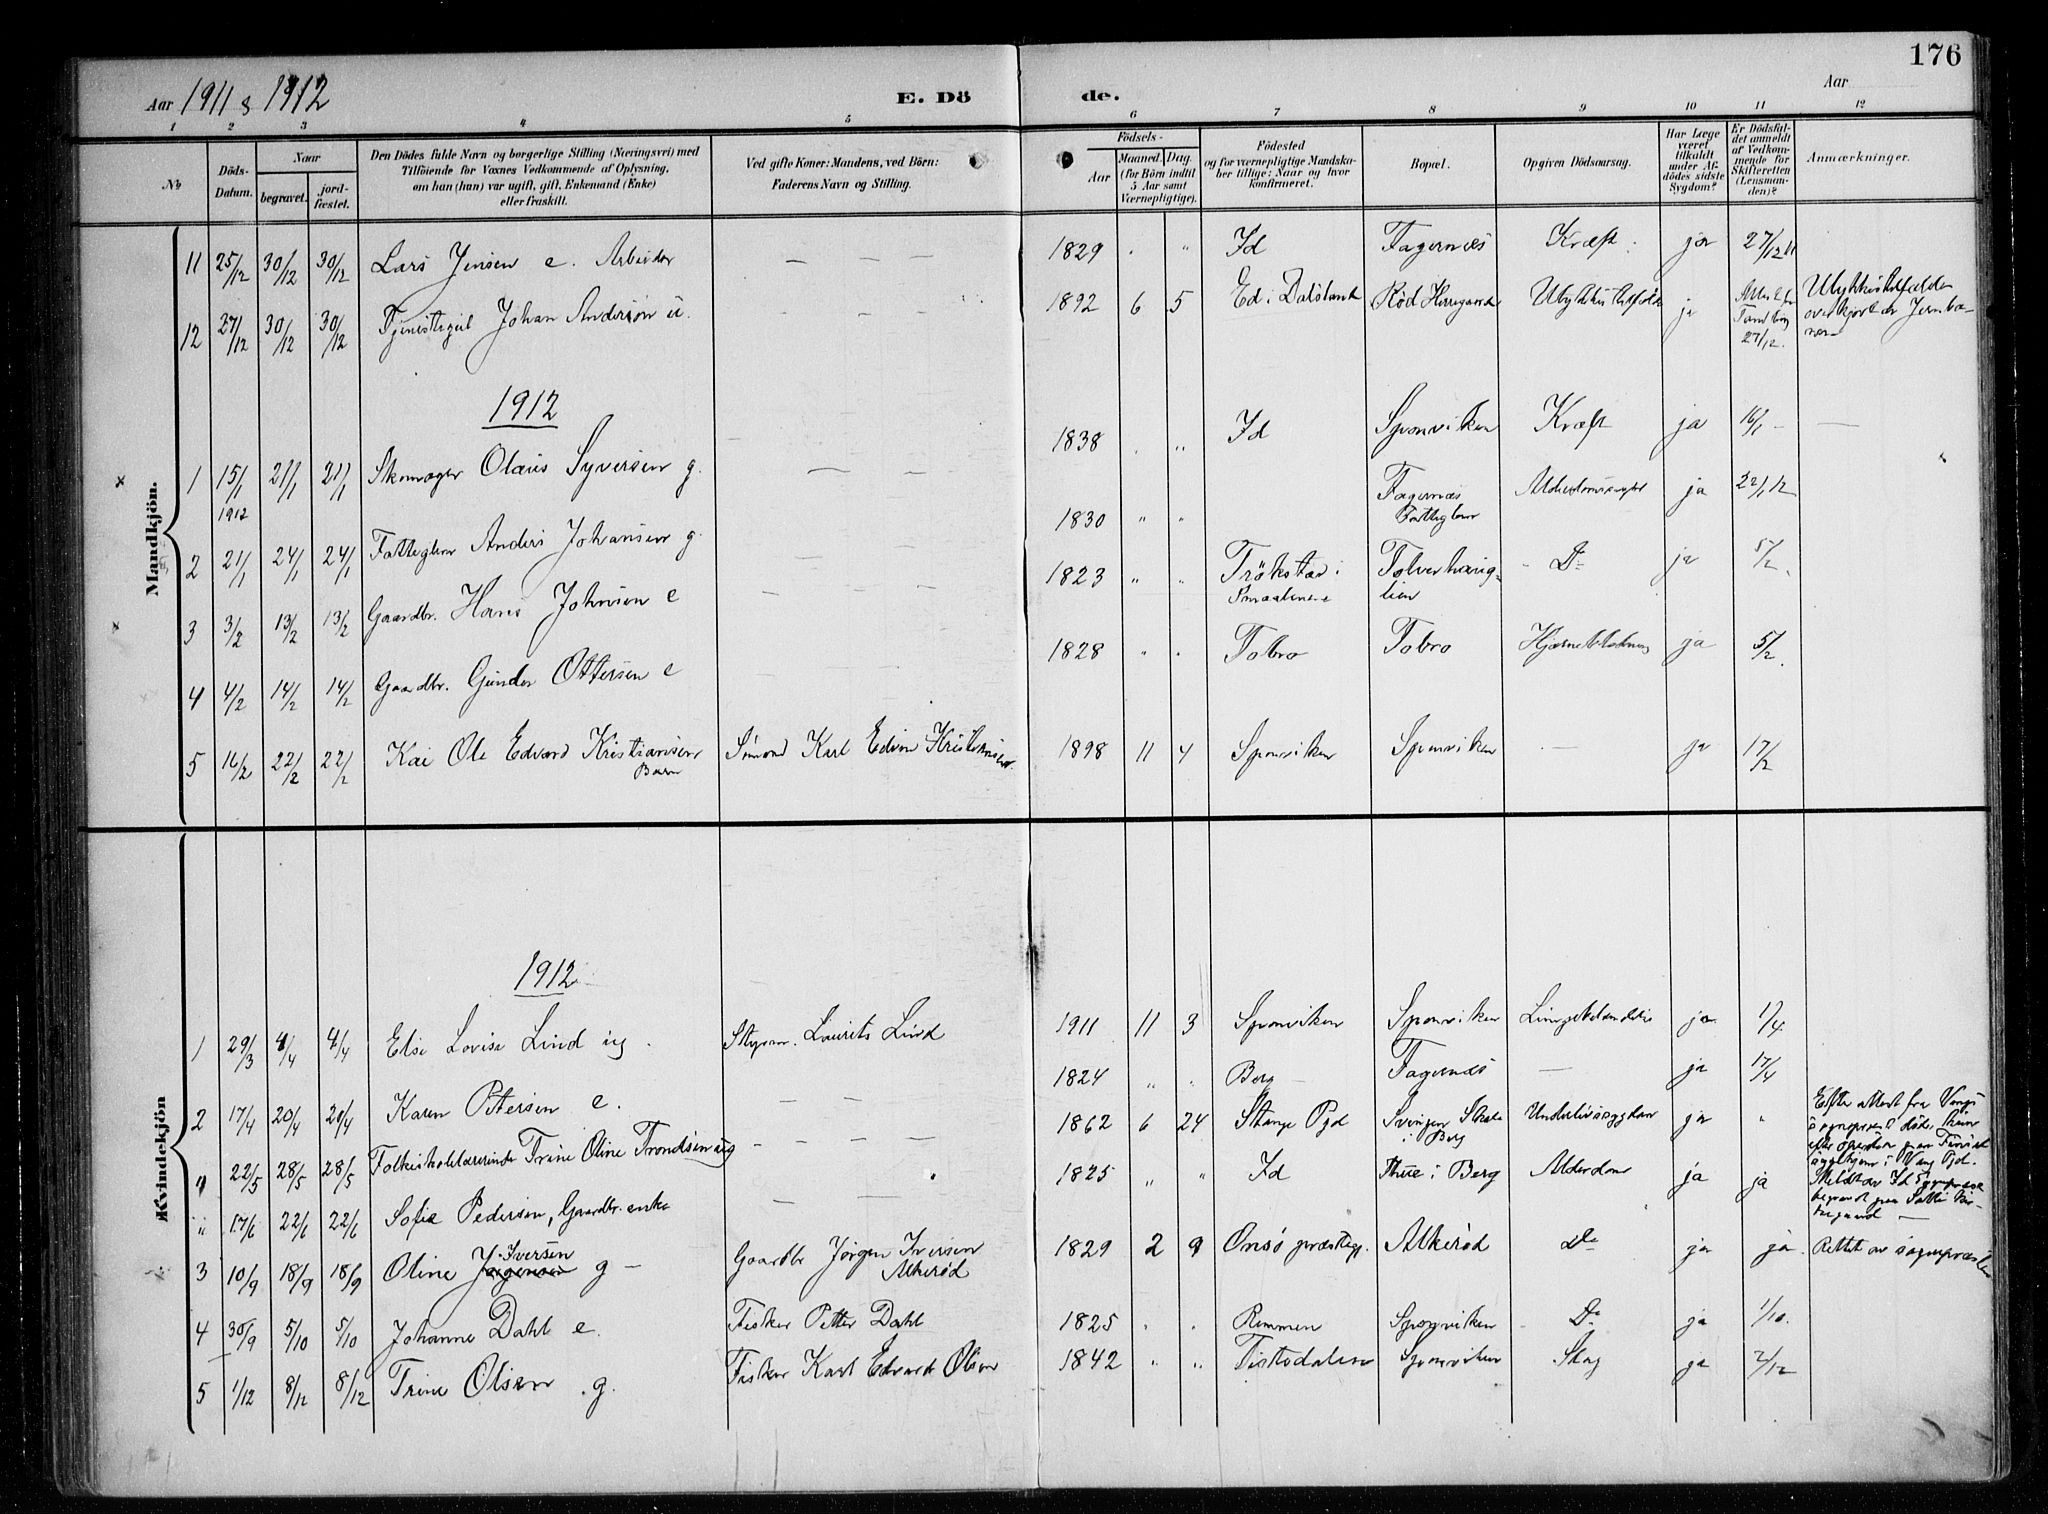 176
Aar 1911 & 1912
E. Dö
de.
Aar
1 2 3 4 5 6 7 8 9 10 11 12
No
Döds-
Datum.
Naar
begravet.
jord-
fæstet.
Den Dödes fulde Navn og borgerlige Stilling (Næringsvei) med
Tilföiende for Voxnes Vedkommende af Oplysning,
om han (hun) var ugift, gift, Enkemand (Enke)
eller fraskilt.
Ved gifte Koner: Mandens, ved Börn:
Faderens Navn og Stilling.
Födsels-
Aar
Maaned. Dag.
(for Börn indtil
5 Aar samt
Værnepligtige).
Födested
og for værnepligtige Mandska-
ber tillige: Naar og hvor
konfirmeret.
Bopæl.
Opgiven Dödsaarsag.
Har Læge
været
tilkaldt
under Af-
dödes sidste
Sygdom?
Er Dödsfal-
det anmeldt
af Vedkom-
mende for
Skifteretten
(Lensman-
den)?
Anmærkninger.
Mandkjön.
11 25/12 30/12 30/12 Lars Jensen e. Arbeider — — — 1829 " " Id Fagernæs Kræft ja 27/12 11
12 27/12 30/12 30/12 Tjenestegut Johan Anderson u. 1892 6 5 Ed i Dalsland Röd Herregaard ja 27/12.
1912
1 15/1 1912 21/1 21/1 Skomager Olaus Syversen g. — — — 1838 " " Id Sponviken Kræft ja 16/1 — —
2 21/1 24/1 24/1 Fattiglem Anders Johansen g. 1830 " " Fagernæs
Fattiglem ja 22/1 12
3 3/2 13/2 13/2 Gaardbr. Hans Johnsen e 1823 " " Trökstad i
Smaalenene Do ja 5/2
4 4/2 14/2 14/2 Gaardbr. Gunder Ottersen e 1828 " " Tobro Tobro ja 5/2
5 16/2 22/2 22/2 Kai Ole Edvard Kristiansen
Barn Sömand Karl Edvin Kristiansen 1898 11 4 Sponviken Sponviken — ja 17/2
Kvindekjön
1912
1 29/3 4/4 4/4 Else Lovise Lind ug. Styrm. Laurits Lind 1911 11 3 Sponviken Sponviken ja 1/4
2 17/4 20/4 20/4 Karen Petersen e. — — 1824 " " Berg Fagernæs — ja 17/4
" 22/5 28/5 28/5 Folkeskolelærerinde Trine Oline Trondsen ug — — — — 1862 6 24 Stange Pgd
i Berg Underlivssygdom ja " Efter attest fra Vangs
" 17/6 22/6 22/6 Sofie Pedersen, Gaardbr. enke — — 1825 " " Id i Berg Alderdom ja ja
3 10/9 18/9 18/9 Oline Iversen Jørgensen g — Gaardbr Jørgen Iversen
Alkerød 1829 2 9 Onsö præstegj. Alkerød Do ja ja Rettet av sognepræsten
4 30/9 5/10 5/10 Johanne Dahl e. Fisker Petter Dahl 1825 " " Remmen Sponviken Do ja 1/10.
5 1/12 8/12 8/12 Trine Olsen g. Fisker Karl Edvard Olsen 1842 " " Tistedalen Sponviken Slag ja 2/12